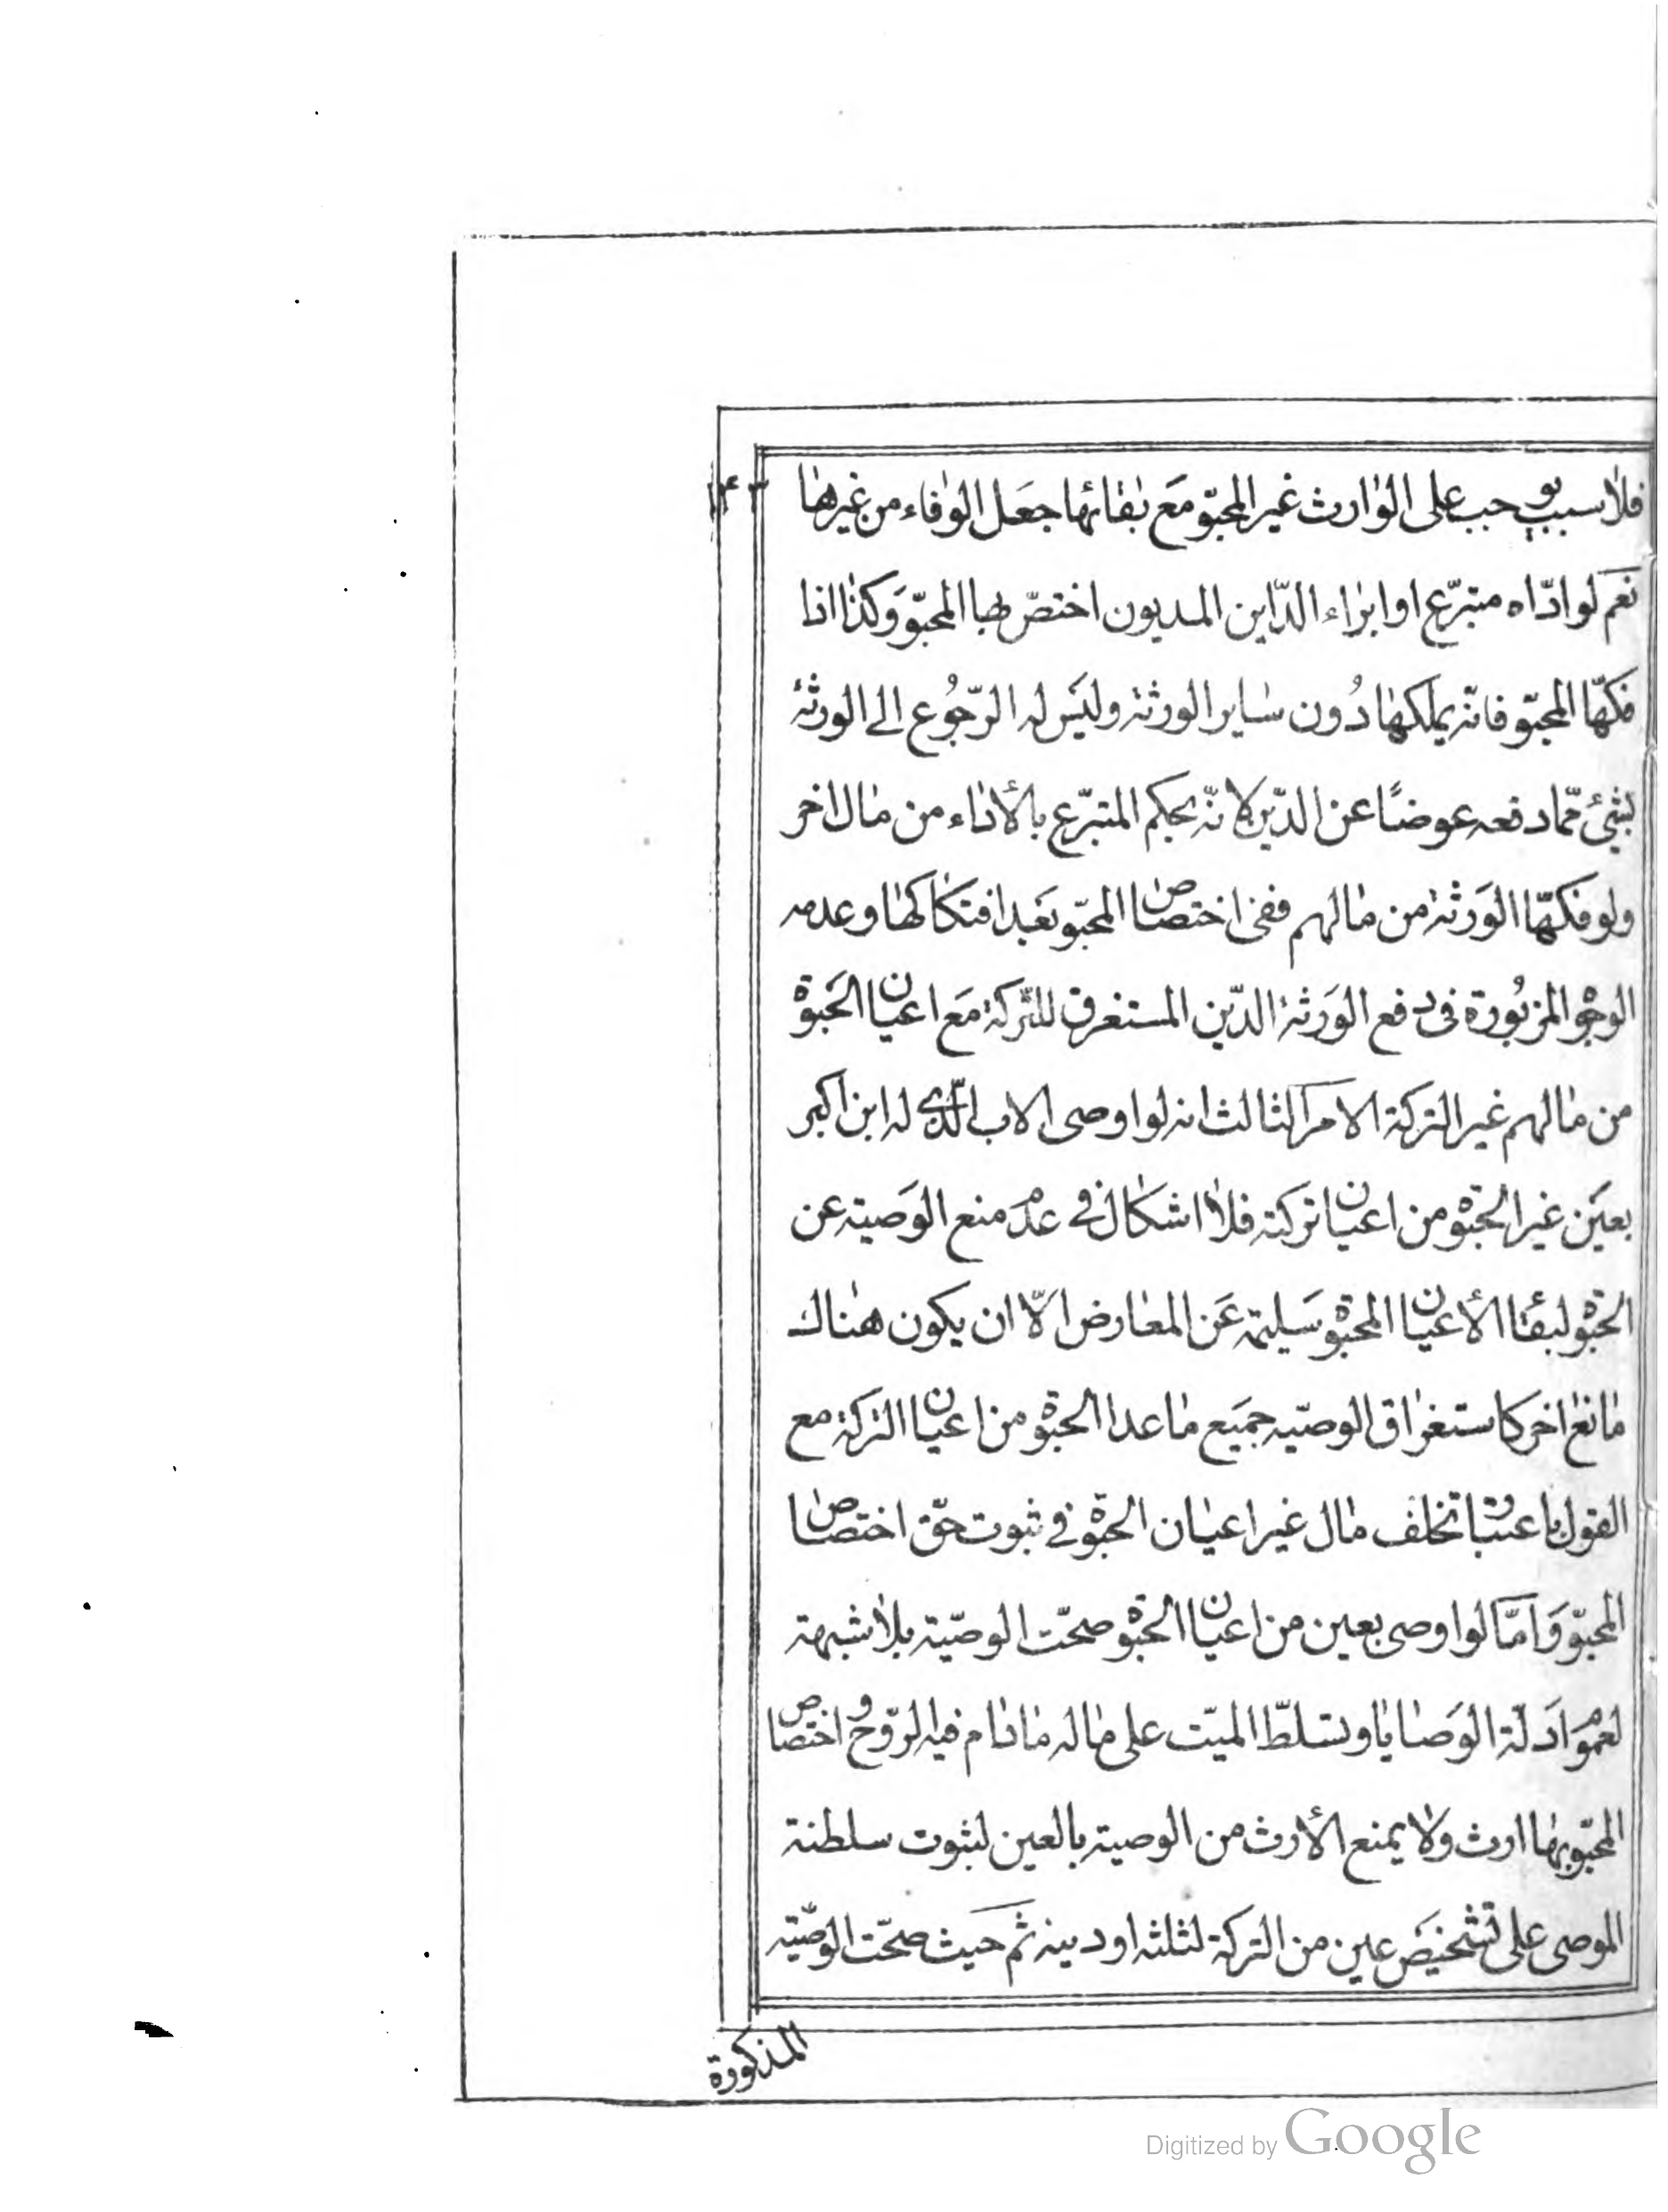 ١٤٣
فلا سبب يوجب على الوارث غير المحبّو مَع بقائها جعَل الوفاء من غيرها
نعَم لو ادّاه متبرّع او ابراء الدّاين المديون اختصّ بها المحبّو وَكذا اذا
فكّها المحبّو فانّه يملكها دُون ساير الورثة وليَس له الرّجُوع الى الورثة
بشئ ممّا دفعه عوضًا عن الدّين لانّه بحكم المتبرّع بالأداء من مال اخر
ولو فكّها الوَرثة من مالهم ففى اختصاص المحبّو بعَد افتكاكها وعدمه
الوجوه المزبُورة فى دفع الوَرثة الدّين المستغرق للتّركة مَع اعيان الحَبوة
من مالهم غير التركة الامر الثالث انه لو اوصى الاب الّذى له ابن اكبر
بعيَن غير الحبوة من اعيان تركته فلا اشكال فى عدَم منع الوَصيته عن
الحبوة لبقاء الأعيان المحبوة سَليمة عَن المعارض الّا ان يكون هناك
مانع اخر كاستغراق الوصيّه جميَع ما عدا الحبوة من اعيان التركة مع
القول باعتبار تخلف مال غير اعيان الحبوة فى ثبوت حقّ اختصاص
المحبّو وَامّا لو اوصى بعين من اعيان الحبوة صحّت الوصيّة بلا شبهة
لعمُوم ادَلّة الوَصايا وتسلطّ الميّت على ماله مادام فيه الرّوح واختصاص
المحبّو بها ارث ولا يمنع الأرث من الوصية بالعين لثبوت سلطنة
الموصى على تشخيَص عين من التركة لثلثه او دينه ثم حيث صحّت الوصّية
المذكورة
Digitized by Google